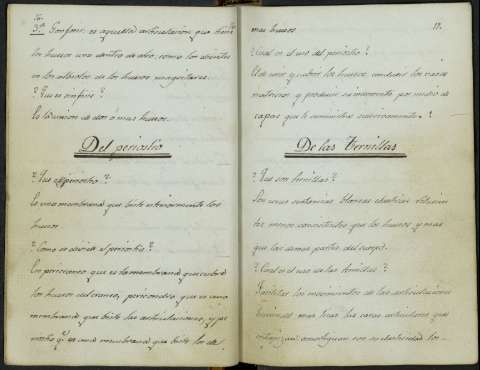 3ª Gonfosis: es aquella articulación, que tiene
los huesos uno dentro de otro, como los dientes
en los alveolos de los huesos maxilares.
? Que es sinfisis?
Es la union de dos ó mas huesos.
Del periostio
? Que es periostio?
Es una membrana que biste esteriormente los
huesos
? Como se divide el periostio?
En pericraneo que es la membrana que cubre
los huesos del craneo, pericondrio que es una
membrana que biste las articulaciones, y pe
riostio qe. es una membrana que biste los de
mas huesos
17.
? Cual es el uso del periostio?
El de unir y cubrir los huesos, conducir los vasos
nutricios y producir su incremento por medio de
capas que le suministra sucesivamente.
De las Ternillas
? Que son ternillas?
Son unas sustancias blancas elasticas
menos consistentes que los huesos y mas
que las demas partes del cuerpo.
? Cual es el uso de las ternillas?
Facilitar los movimientos de las articulaciones
haciendo mas lisas las caras articulares que
amortiguan con su elasticidad los